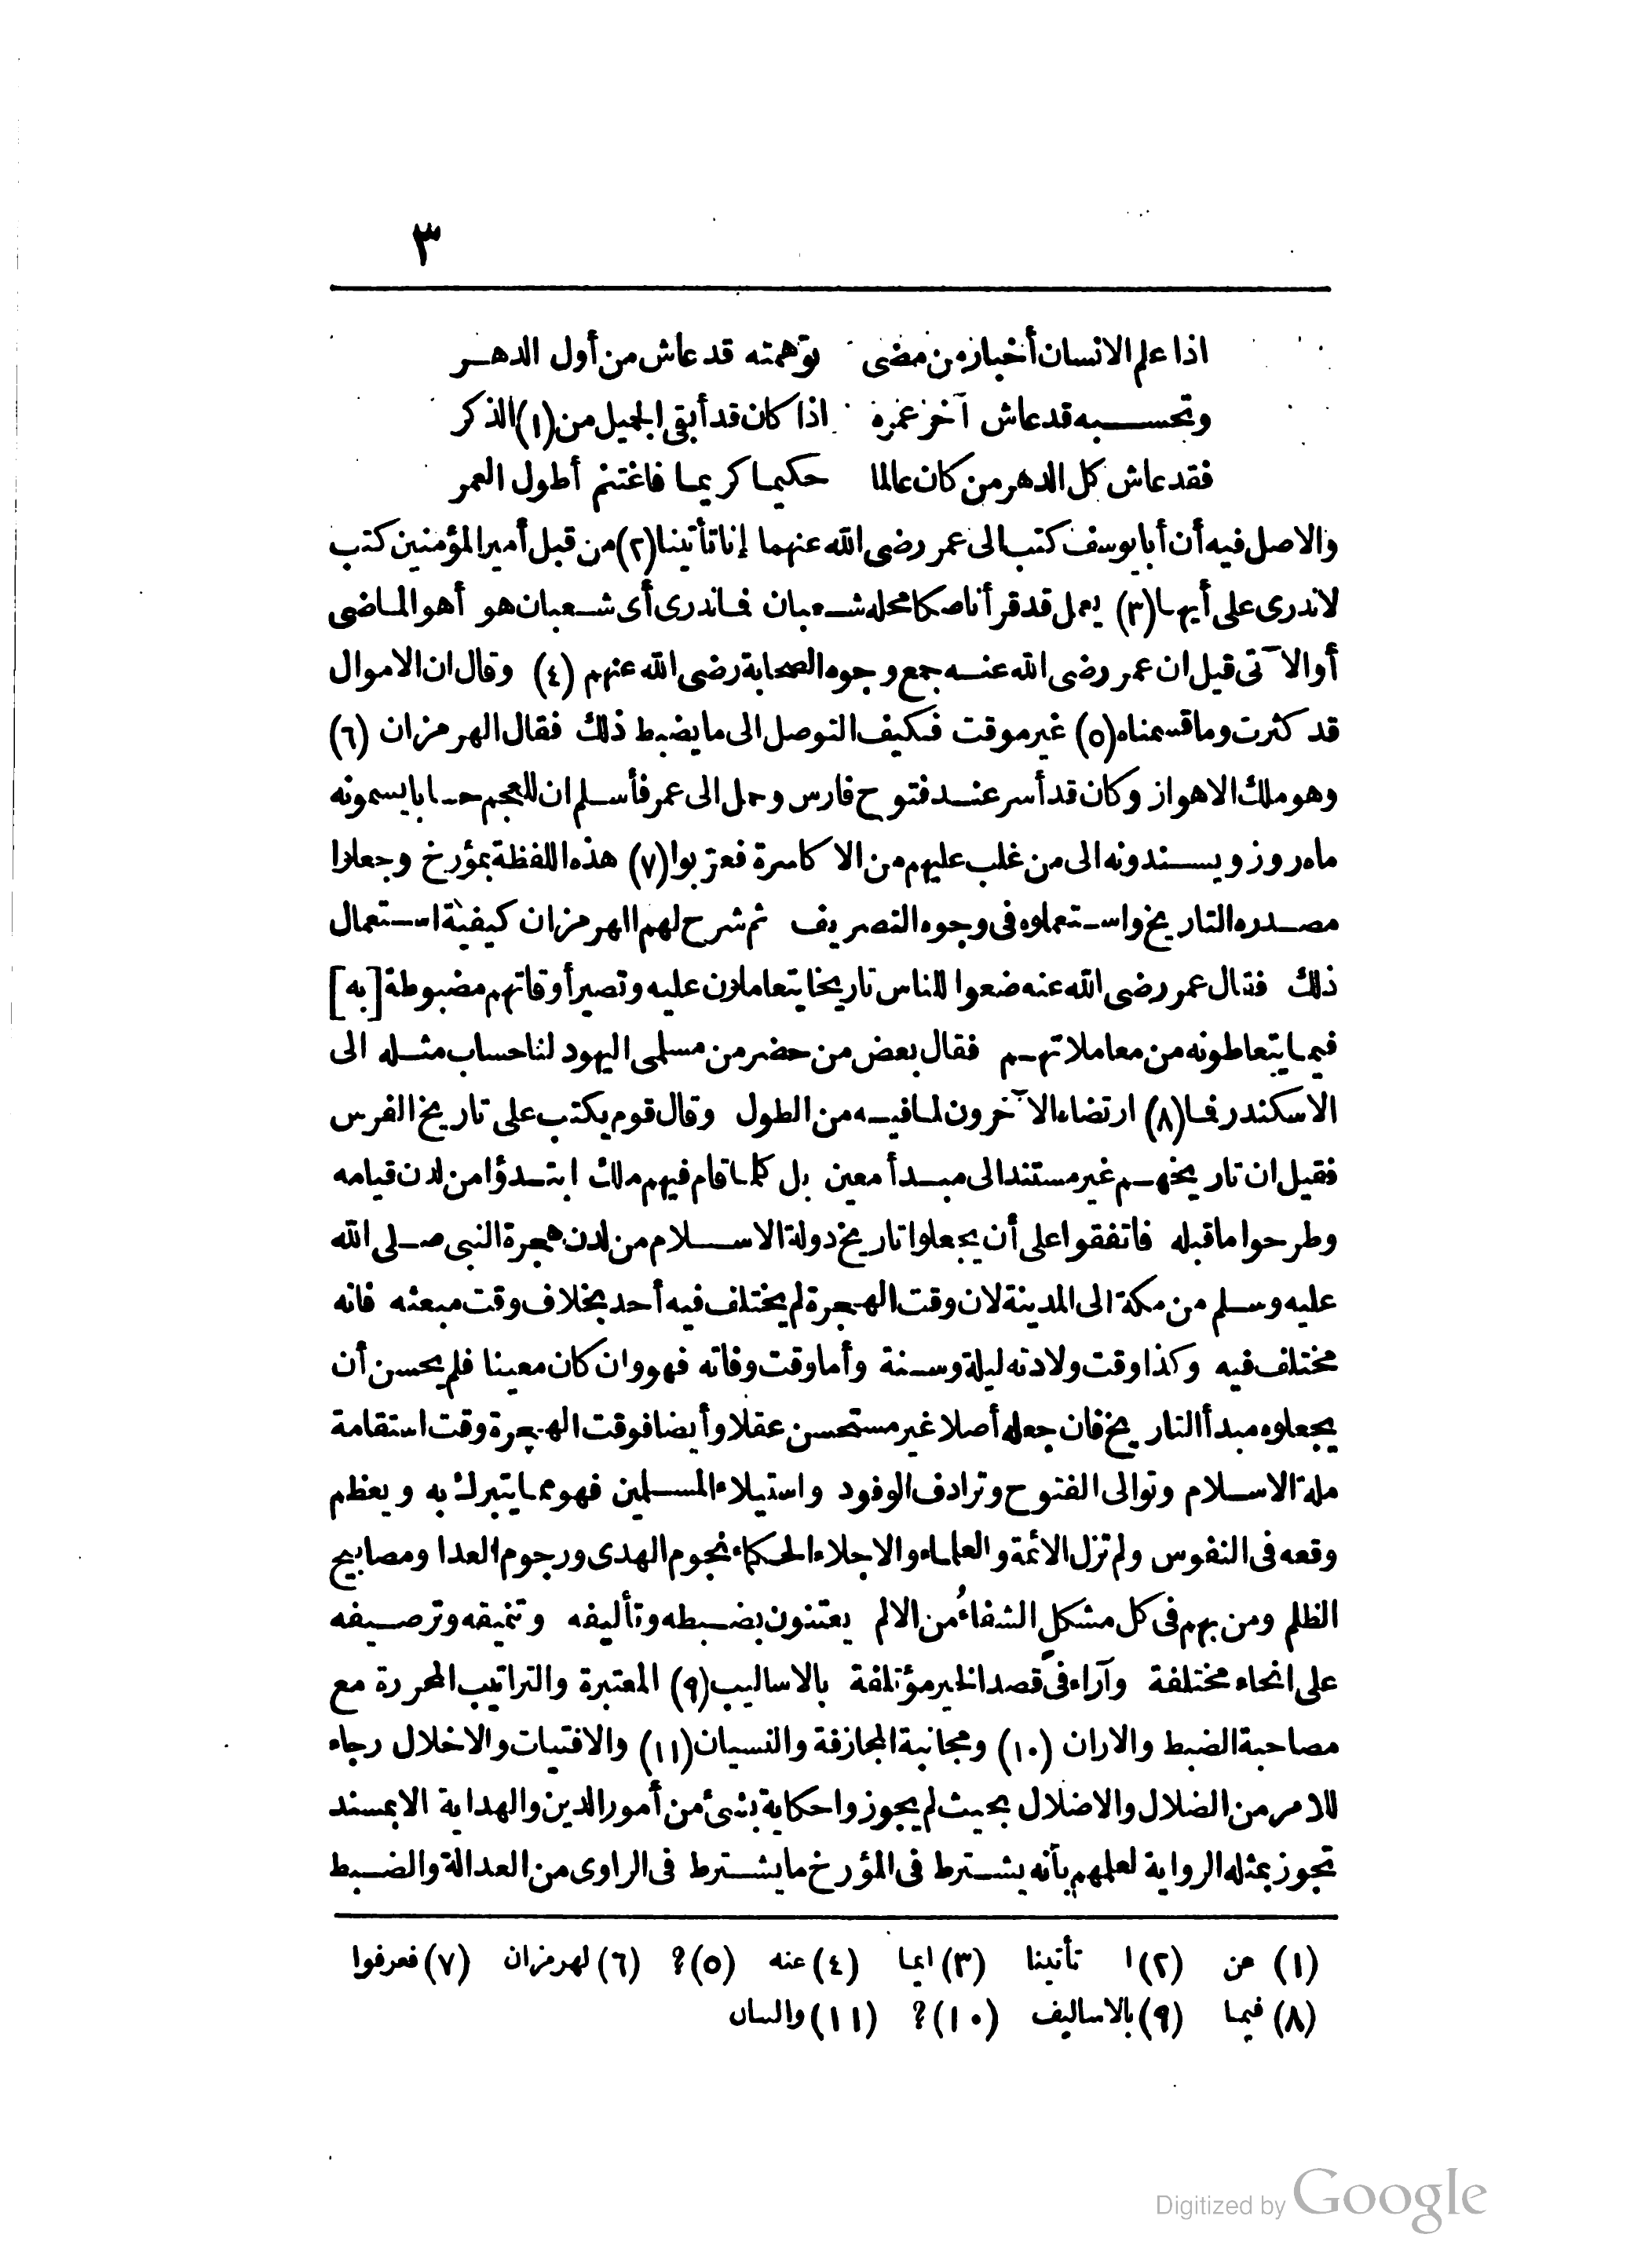 ٣
اذا علم الانسان أخبار من مضى توّهمته قد عاش من أول الدهر
وتحسبه قد عاش آخر عمره اذا كان قد أبقى الجميل من (١) الذكر
فقد عاش كل الدهر من كان عالما حكيما كريما فاغتنم أطول العمر
والاصل فيه أن أبا يوسف كتب الى عمر رضى الله عنهما إنا تأتينا (٢) من قبل أمير المؤمنين كتب
لاندرى على أيها (٣) يعمل قد قرأنا صكا محله شعبان فما ندرى أى شعبان هو أهو الماضى
أو الآتى قيل ان عمر رضى الله عنه جمع وجوه الصحابة رضى الله عنهم (٤) وقال ان الاموال
قد كثرت وما قسمناه (٥) غير موقت فكيف التوصل الى ما يضبط ذلك فقال الهرمزان (٦)
وهو ملك الاهواز وكان قد أسر عند فتوح فارس وحمل الى عمر فأسلم ان للعجم حسابا يسمونه
ماه روز ويسندونه الى من غلب عليهم من الاكاسرة فعرّبوا (٧) هذه اللفظة بمؤرخ وجعلوا
مصدره التاريخ واستعملوه فى وجوه التصريف ثم شرح لهم الهرمزان كيفية استعمال
ذلك فقال عمر رضى الله عنه ضعوا للناس تاريخا يتعاملون عليه وتصير أوقاتهم مضبوطة [به]
فيما يتعاطونه من معاملاتهم فقال بعض من حضر من مسلمى اليهود لنا حساب مثله الى
الاسكندر فما (٨) ارتضاه الآخرون لما فيه من الطول وقال قوم يكتب على تاريخ الفرس
فقيل ان تاريخهم غير مستند الى مبدأ معين بل كلما قام فيهم ملك ابتدؤا من لدن قيامه
وطرحوا ما قبله فاتفقوا على أن يجعلوا تاريخ دولة الاسلام من لدن هجرة النبى صلى الله
عليه وسلم من مكة الى المدينة لان وقت الهجرة لم يختلف فيه أحد بخلاف وقت مبعثه فانه
مختلف فيه وكذا وقت ولادته ليلة وسنة وأما وقت وفاته فهو وان كان معينا فلم يحسن أن
يجعلوه مبدأ التاريخ فان جعله أصلا غير مستحسن عقلا وأيضا فوقت الهجرة وقت استقامة
ملة الاسلام وتوالى الفتوح وترادف الوفود واستيلاء المسلمين فهو مما يتبرك به ويعظم
وقعه فى النفوس ولم تزل الأئمة والعلماء والاجلاء الحكماء نجوم الهدى ورجوم العدا ومصابيح
الظلم ومن بهم فى كل مشكلٍ الشفاءُ من الالم يعتنون بضبطه وتأليفه وتنميقه وترصيفه
على انحاء مختلفة وآراء فى قصد الخير مؤتلفة بالاساليب (٩) المعتبرة والتراتيب المحررة مع
مصاحبة الضبط والاران (١٠) ومجانبة المجازفة والنسيان (١١) والافتيات والاخلال رجاء
للامر من الضلال والاضلال بحيث لم يجوزوا حكاية بشئ من أمور الدين والهداية الا بمسند
تجوز بمثله الرواية لعلمهم بأنه يشترط فى المؤرخ ما يشترط فى الراوى من العدالة والضبط
(١) عن (٢) ا تأتينا (٣) ايما (٤) عنه (٥) ? (٦) لهرمزان (٧) فعرفوا
(٨) فيما (٩) بالاساليف (١٠) ? (١١) والسان
Digitized by Google